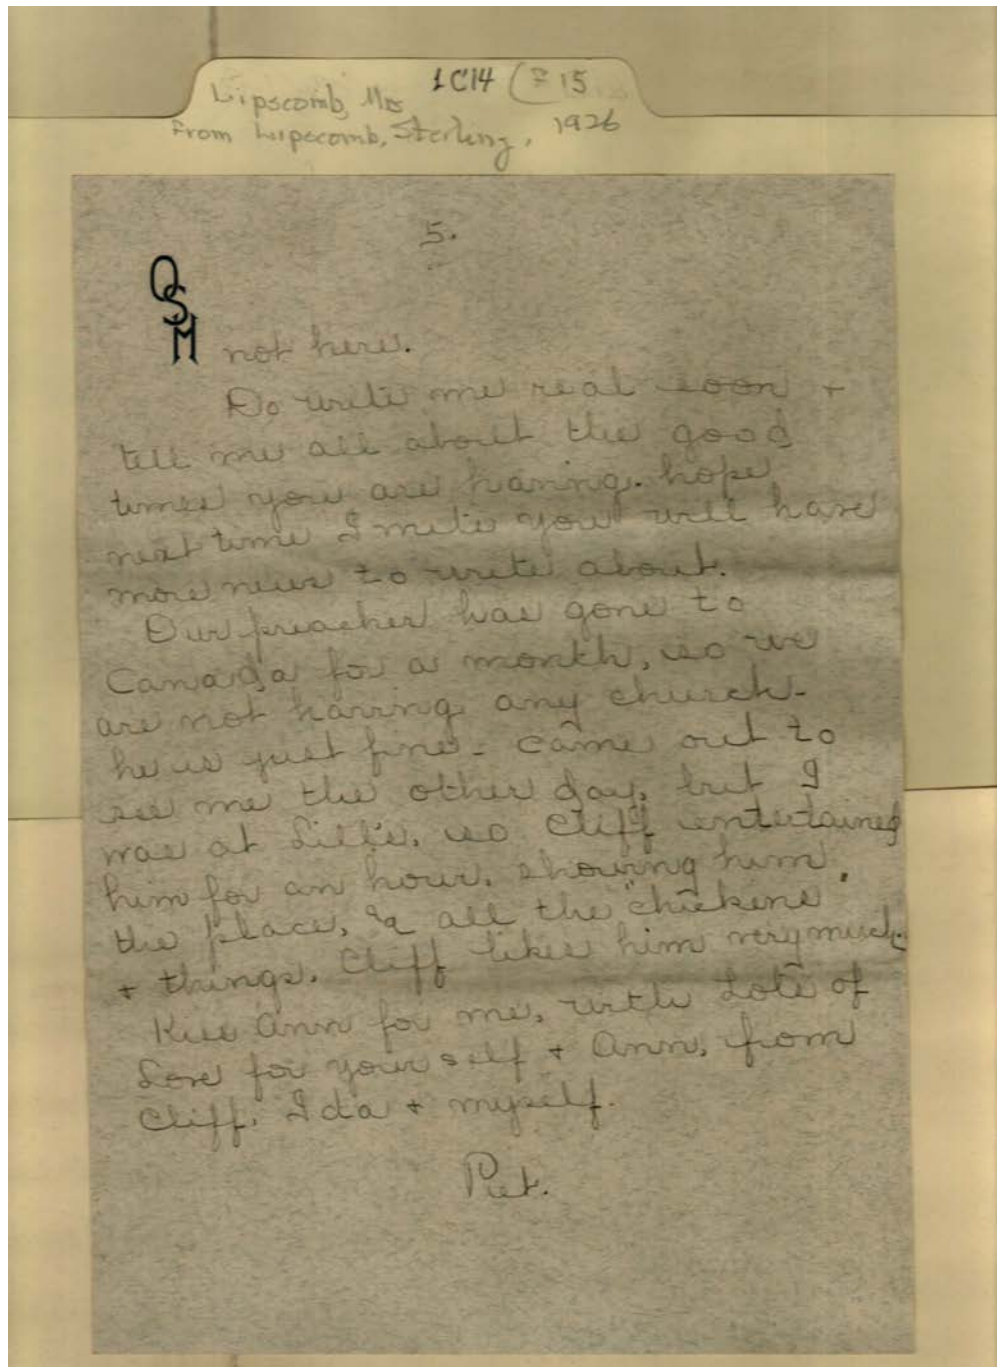 1C14 (F 15
Lipscomb, Mrs
From Lipscomb, Sterling, 1926
5.
OSM
not here.
Do write me real soon +
tell me all about the good
times you are having. hope
next time I write you will have
more news to write about.
Our preacher has gone to
Canada for a month, so we
are not having any church-
he is just fine- came out to
see me the other day, but I
was at Lill's, so Cliff entertained
him for an hour, showing him
the place, & all the "chickens"
+ things. Cliff likes him very much.
Kiss Ann for me, with Lots of
Love for your self + Ann, from
Cliff, Ida + myself.